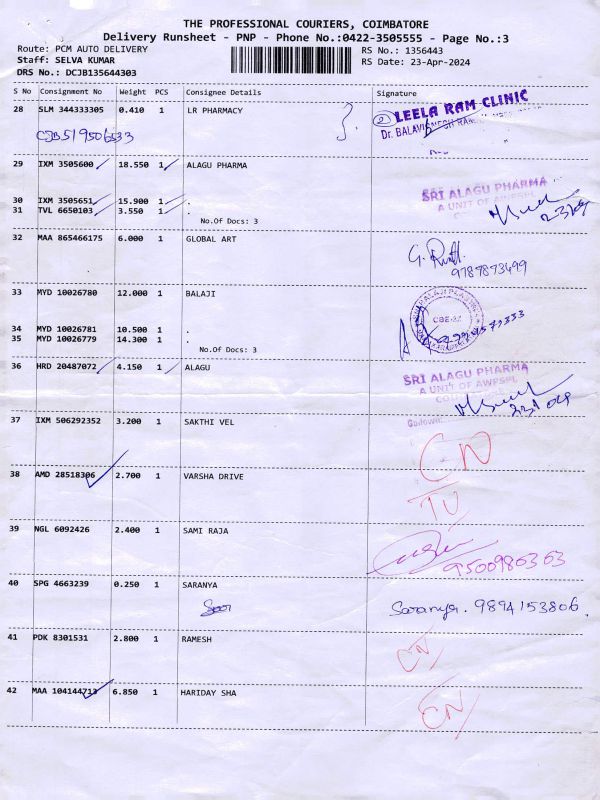 THE PROFESSIONAL COURIERS, COIMBATORE
Delivery Runsheet - PNP - Phone No.:0422-3505555 - Page No.:3
Route: PCM AUTO DELIVERY
RS No.: 1356443
Staff: SELVA KUMAR
RS Date: 23-Apr-2024
DRS No.: DCJB135644303
S No Consignment No Weight PCS Consignee Details Signature
28 SLM 344333305 0.410 1 LR PHARMACY
LEELA RAM CLINIC
CJB519506533
29 IXM 3505600 18.550 1 ALAGU PHARMA
30 IXM 3505651 15.900 1 .
SRI ALAGU PHARMA
A UNIT OF AWPSPL
31 TVL 6650103 3.550 1 .
No.Of Docs: 3
32 MAA 865466175 6.000 1 GLOBAL ART
9787873499
33 MYD 10026780 12.000 1 BALAJI
CBE-
34 MYD 10026781 10.500 1 .
35 MYD 10026779 14.300 1 .
No.Of Docs: 3
36 HRD 20487072 4.150 1 ALAGU
SRI ALAGU PHARMA
A UNIT OF AWPSPL
37 IXM 506292352 3.200 1 SAKTHI VEL
CN
38 AMD 28518306 2.700 1 VARSHA DRIVE
39 NGL 6092426 2.400 1 SAMI RAJA
9500980363
40 SPG 4663239 0.250 1 SARANYA
Saranya. 9894153806
41 PDK 8301531 2.800 1 RAMESH
CN
42 MAA 104144713 6.850 1 HARIDAY SHA
CN